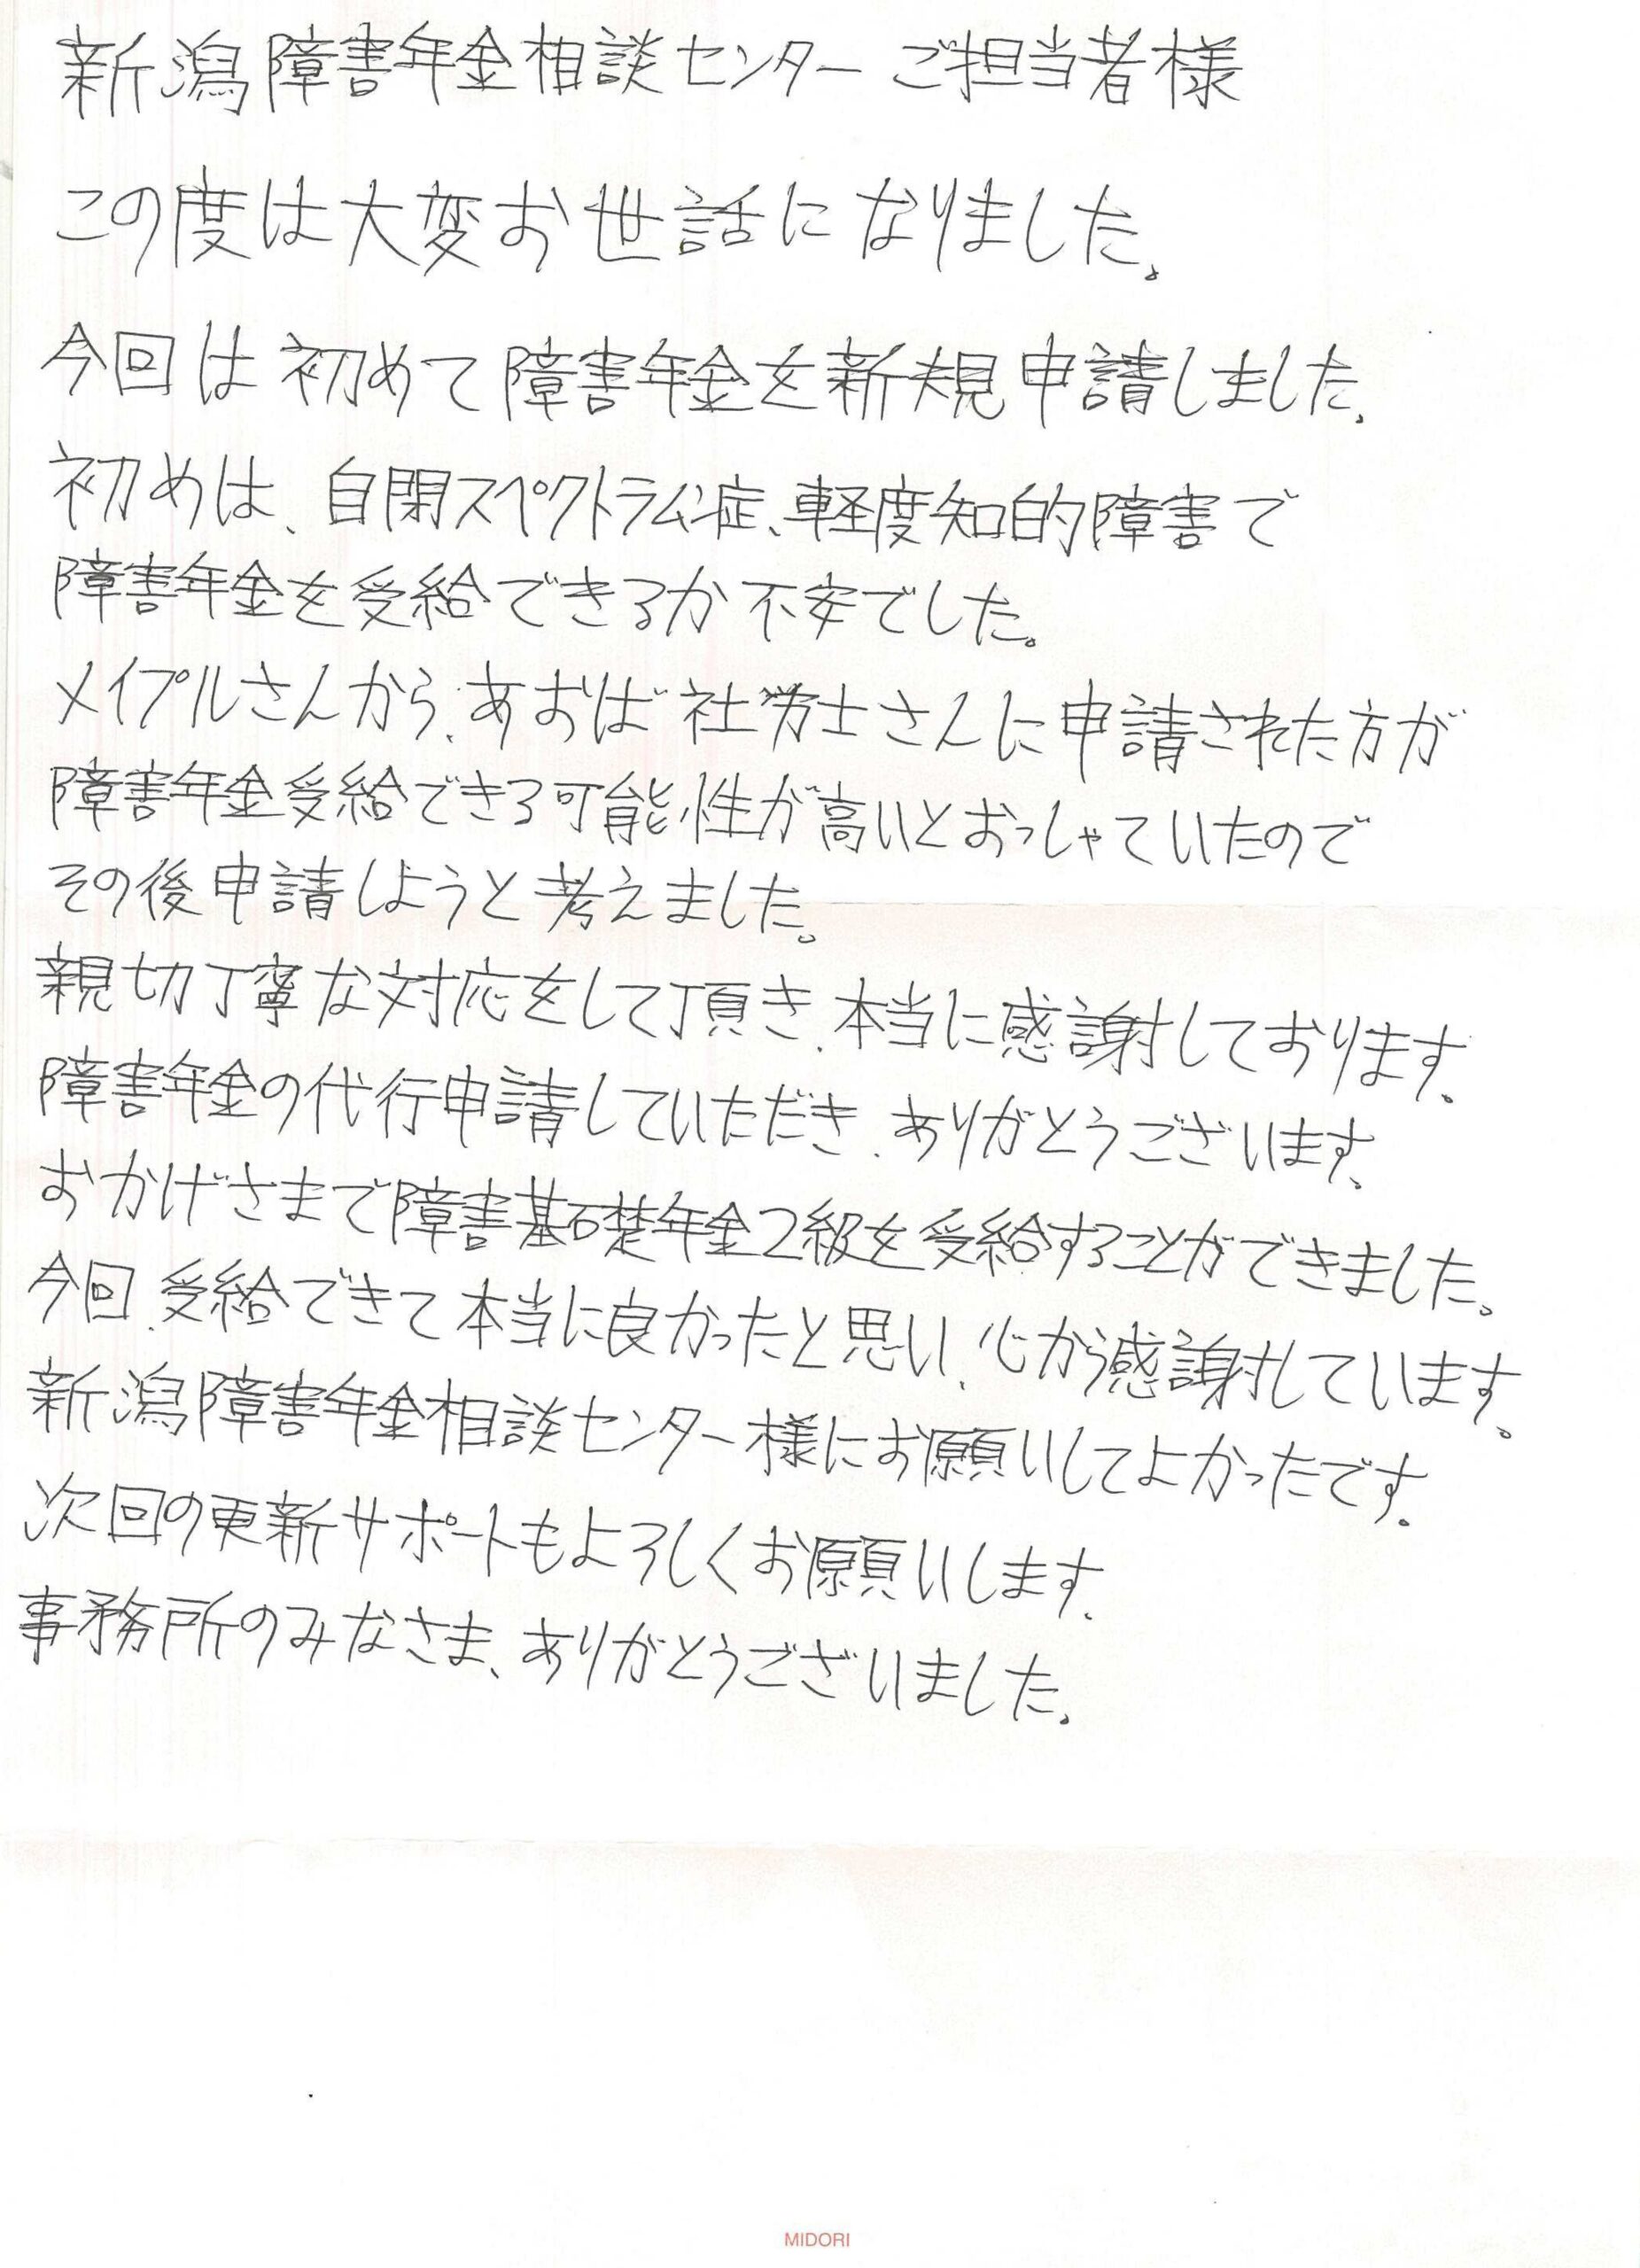 新潟障害年金相談センター ご担当者様
この度は大変お世話になりました。
今回は初めて障害年金を新規申請しました。
初めは、自閉スペクトラム症、軽度知的障害で
障害年金を受給できるか不安でした。
メイプルさんから、あおば社労士さんに申請された方が
障害年金受給できる可能性が高いとおっしゃていたので
その後申請しようと考えました。
親切丁寧な対応をして頂き、本当に感謝しております。
障害年金の代行申請していただき、ありがとうございます。
おかげさまで障害基礎年金2級を受給することができました。
今回、受給できて本当に良かったと思い、心から感謝しています。
新潟障害年金相談センター様にお願いしてよかったです。
次回の更新サポートもよろしくお願いします。
事務所のみなさま、ありがとうございました。
MIDORI